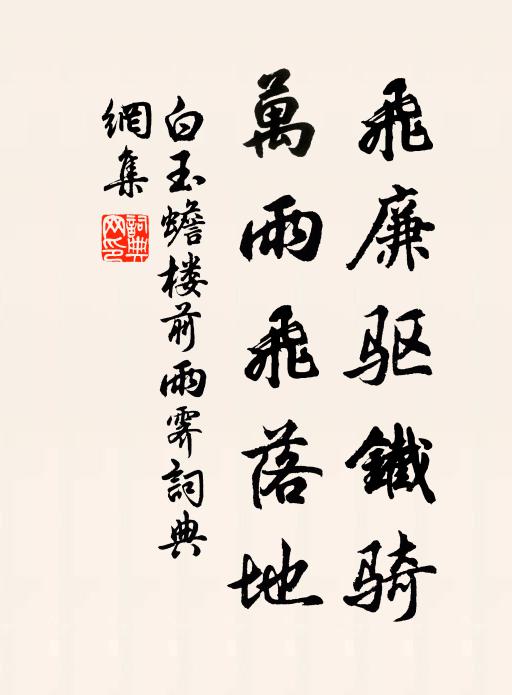 飛廉驱鐵骑
萬雨飛落地
白玉蟾楼前雨霁詞典
網集
詞典网印